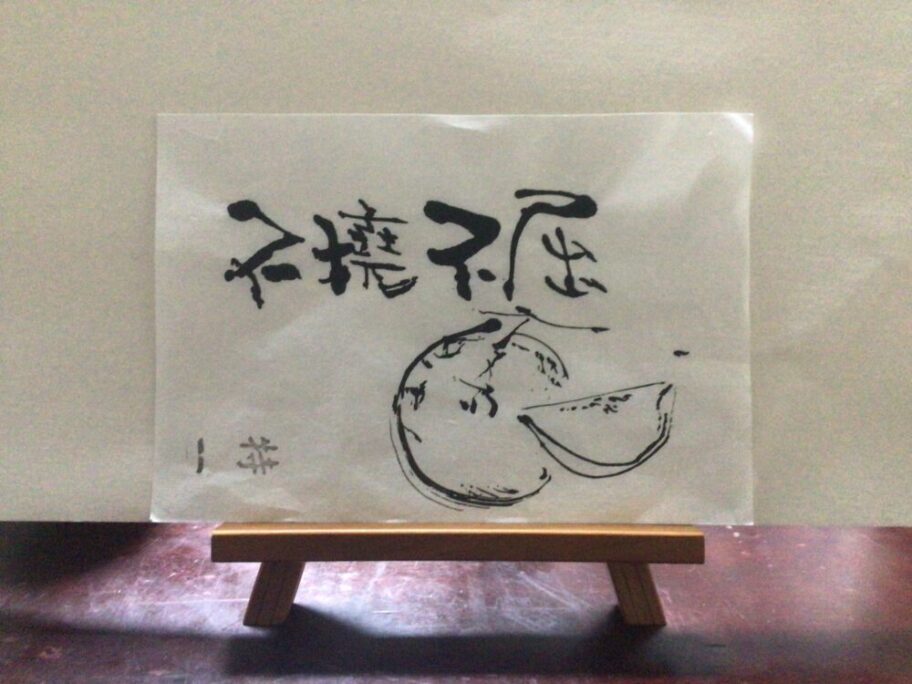 不撓不屈
一持